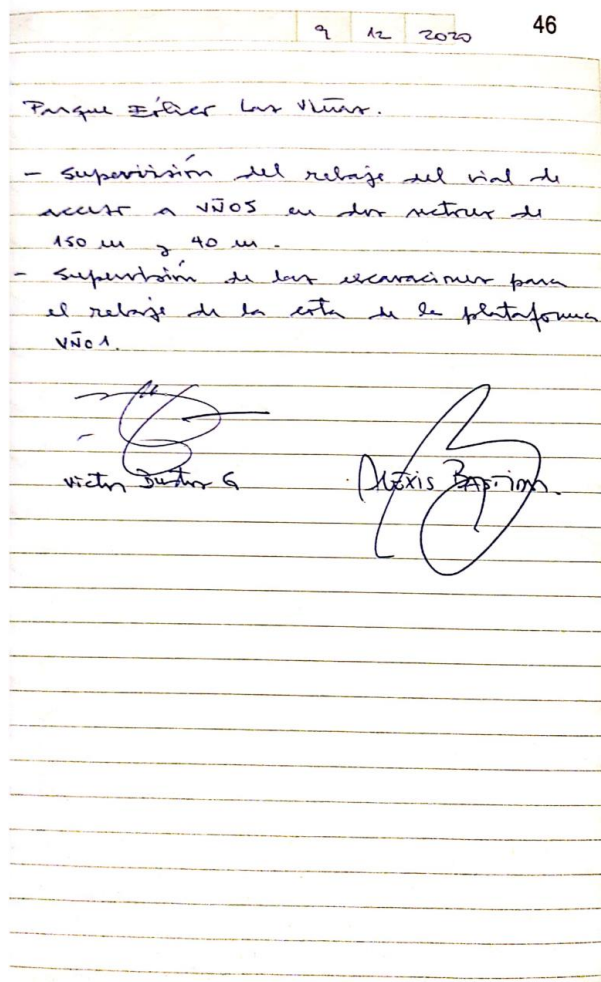 9 12 2020 46
Parque Eólico Las Viñas.
- Supervisión del rebaje del vial de
acceso a VÑ05 en dos sectores de
150 m y 40 m.
- Supervisión de las excavaciones para
el rebaje de la cota de la plataforma
VÑ01.
Victor G Alexis